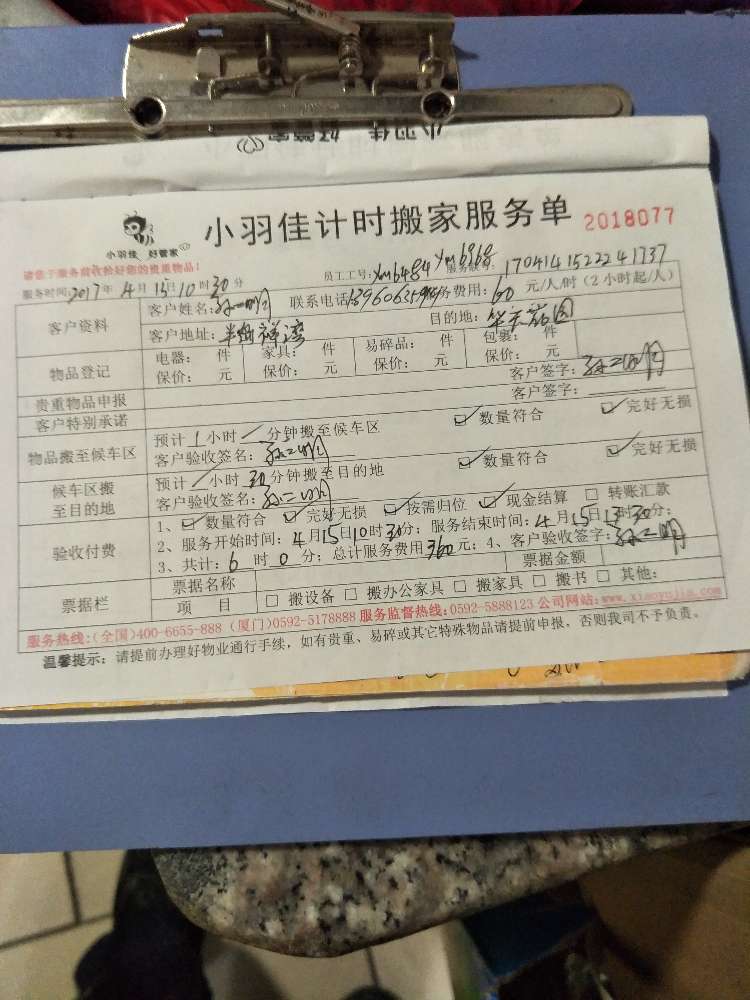 小羽佳 好管家
小羽佳 好管家
小羽佳计时搬家服务单 2018077
请您于服务前收拾好您的贵重物品!
员工工号:ym6484 ym6968 服务航号:170414152224 1737
服务时间:2017年4月15日10时30分
客户资料 客户姓名: 联系电话 服务费用:60元/人/时(2小时起/人)
客户地址: 目的地:
物品登记 电器: 件 家具: 件 易碎品: 件 包裹: 件
保价: 元 保价: 元 保价: 元 保价: 元
贵重物品申报 客户签字:
客户特别承诺 客户签字:
物品搬至候车区 预计1小时/分钟搬至候车区 ☑数量符合 ☑完好无损
客户验收签名:
候车区搬至目的地 预计/小时30分钟搬至目的地 ☑数量符合 ☑完好无损
客户验收签名:
验收付费 1、☑数量符合 ☑完好无损 ☑按需归位 ☑现金结算 □转账汇款
2、服务开始时间:4月15日10时30分;服务结束时间:4月15日13时30分;
3、共计:6时0分;总计服务费用360元;4、客户验收签字:
票据栏 票据名称 票据金额
项 目 □搬设备 □搬办公家具 □搬家具 □搬书 □其他:
服务热线:(全国)400-6655-888 (厦门)0592-5178888 服务监督热线:0592-5888123 公司网站:www.xiaoyujia.com
温馨提示:请提前办理好物业通行手续,如有贵重、易碎或其它特殊物品请提前申报,否则我司不予负责。